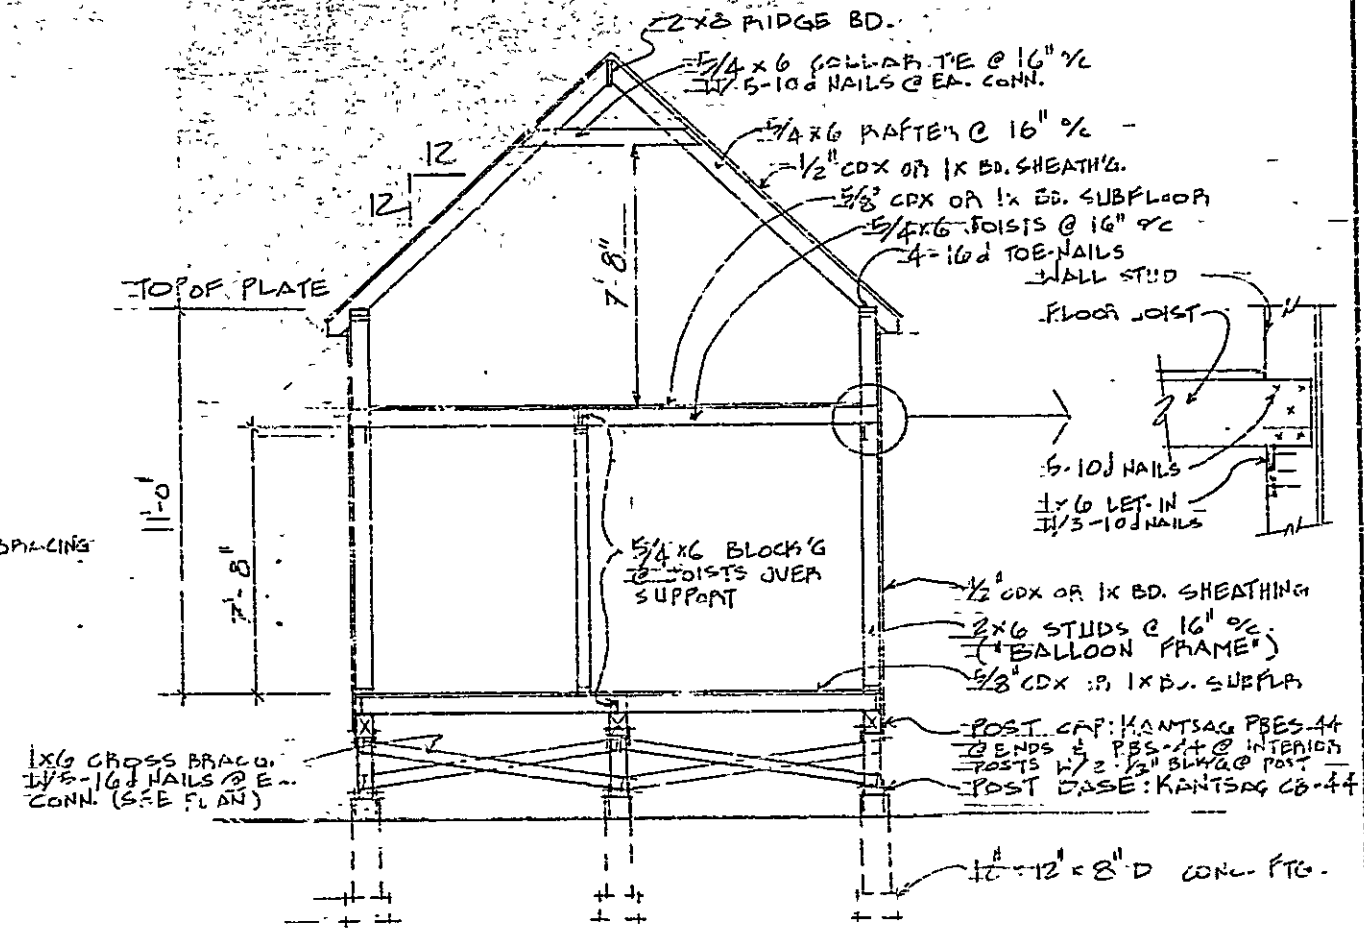 2×8 RIDGE BD.
5/4 × 6 COLLAR TIE @ 16" o/c
W/ 5-10d NAILS @ EA. CONN.
5/4 ×6 RAFTER @ 16" o/c
1/2" CDX OR 1× BD. SHEATH'G.
5/8" CDX OR 1× BD. SUBFLOOR
5/4×6 JOISTS @ 16" o/c
4-16d TOE-NAILS
WALL STUD
FLOOR JOIST
12
12
7'-8"
TOP OF PLATE
11'-0"
7'-8"
BRACING
5/4 ×6 BLOCK'G
@ JOISTS OVER
SUPPORT
5-10d NAILS
1×6 LET-IN
W/3-10d NAILS
1/2" CDX OR 1× BD. SHEATHING
2×6 STUDS @ 16" o/c
("BALLOON FRAME")
5/8" CDX OR 1× BD. SUBFLR
POST CAP: KANTSAG PBES-44
@ ENDS & PBS-44 @ INTERIOR
POSTS W/2-1/2" BLK'G @ POST
POST BASE: KANTSAG CB-44
1×6 CROSS BRAC'G.
W/5-16d NAILS @ E
CONN. (SEE PLAN)
12" × 8" D CONC. FTG.